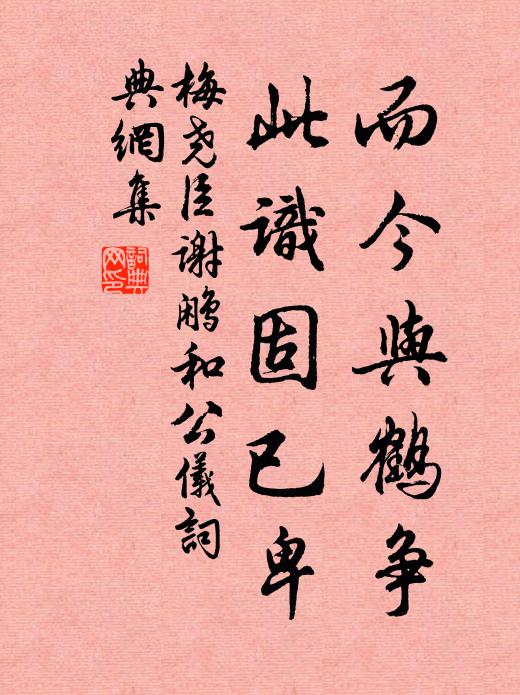 而今與鶴争
此識固已卑
梅尧臣謝鵩和公儀詞
典網集
詞典
网印